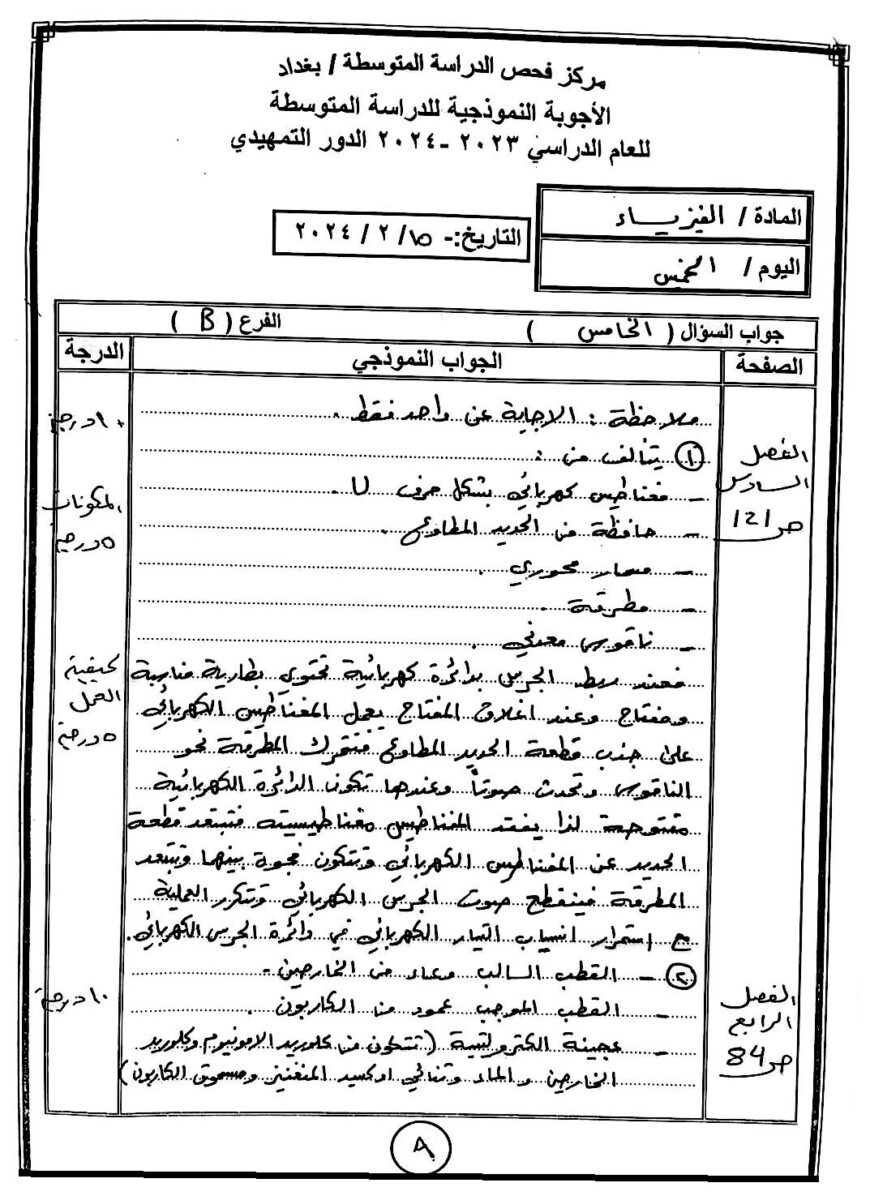 مركز فحص الدراسة المتوسطة / بغداد
الأجوبة النموذجية للدراسة المتوسطة
للعام الدراسي ٢٠٢٣ -٢٠٢٤ الدور التمهيدي
المادة / الفيزياء
التاريخ:- ١٥/ ٢ / ٢٠٢٤
اليوم / الخميس
جواب السؤال ( الخامس ) الفرع ( B )
الصفحة الجواب النموذجي الدرجة
ملاحظة : الاجابة عن واحد فقط . ١٠ درجة
الفصل السادس ص 121
① يتألف من :
- مغناطيس كهربائي بشكل حرف U . المكونات
- حافظة من الحديد المطاوع ٥ درجة
- مسمار محوري .
- مطرقة .
- ناقوس معدني .
فعند ربط الجرس بدائرة كهربائية تحتوي بطارية مناسبة كيفية
ومفتاح وعند اغلاق المفتاح يعمل المغناطيس الكهربائي العمل
على جذب قطعة الحديد المطاوع فتتحرك المطرقة نحو ٥ درجة
الناقوس وتحدث صوتاً وعندها تكون الدائرة الكهربائية
مفتوحة لذا يفقد المغناطيس مغناطيسيته فتبتعد قطعة
الحديد عن المغناطيس الكهربائي وتتكون فجوة بينهما وتبتعد
المطرقة فينقطع صوت الجرس الكهربائي وتتكرر العملية
مع استمرار انسياب التيار الكهربائي في دائرة الجرس الكهربائي.
② - القطب السالب وعاء من الخارصين - ١٠ درجة
الفصل الرابع ص 84
- القطب الموجب عمود من الكاربون .
- عجينة الكترولتية (تتكون من كلوريد الامونيوم وكلوريد
الخارصين والماء وثنائي اوكسيد المنغنيز ومسحوق الكاربون)
٩